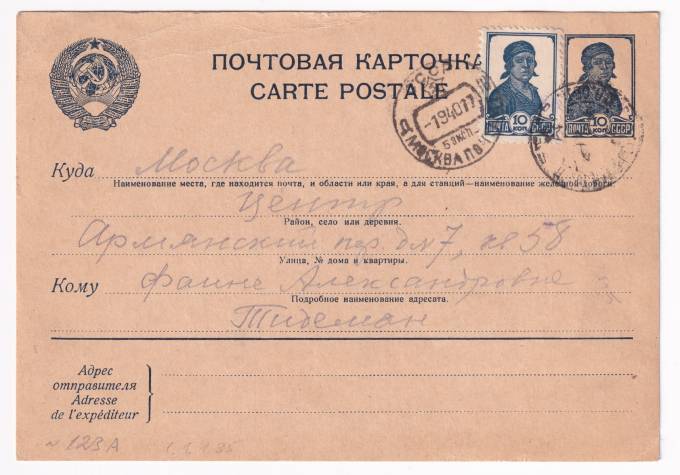 ПОЧТОВАЯ КАРТОЧКА
CARTE POSTALE
ПОЧТА 10 КОП. СССР
МОСКВА
Куда Москва
Наименование места, где находится почта, и области или края, а для станций—наименование железной дороги.
Центр
Район, село или деревня.
Армянский пер. д. №7, кв 58
Улица, № дома и квартиры.
Кому Фаине Александровне
Подробное наименование адресата.
Тидеман
Адрес
отправителя
Adresse
de l'expéditeur
~ 123А